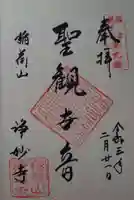 奉拝
令和三年
二月廿一日
聖観世音
稲荷山
浄妙寺